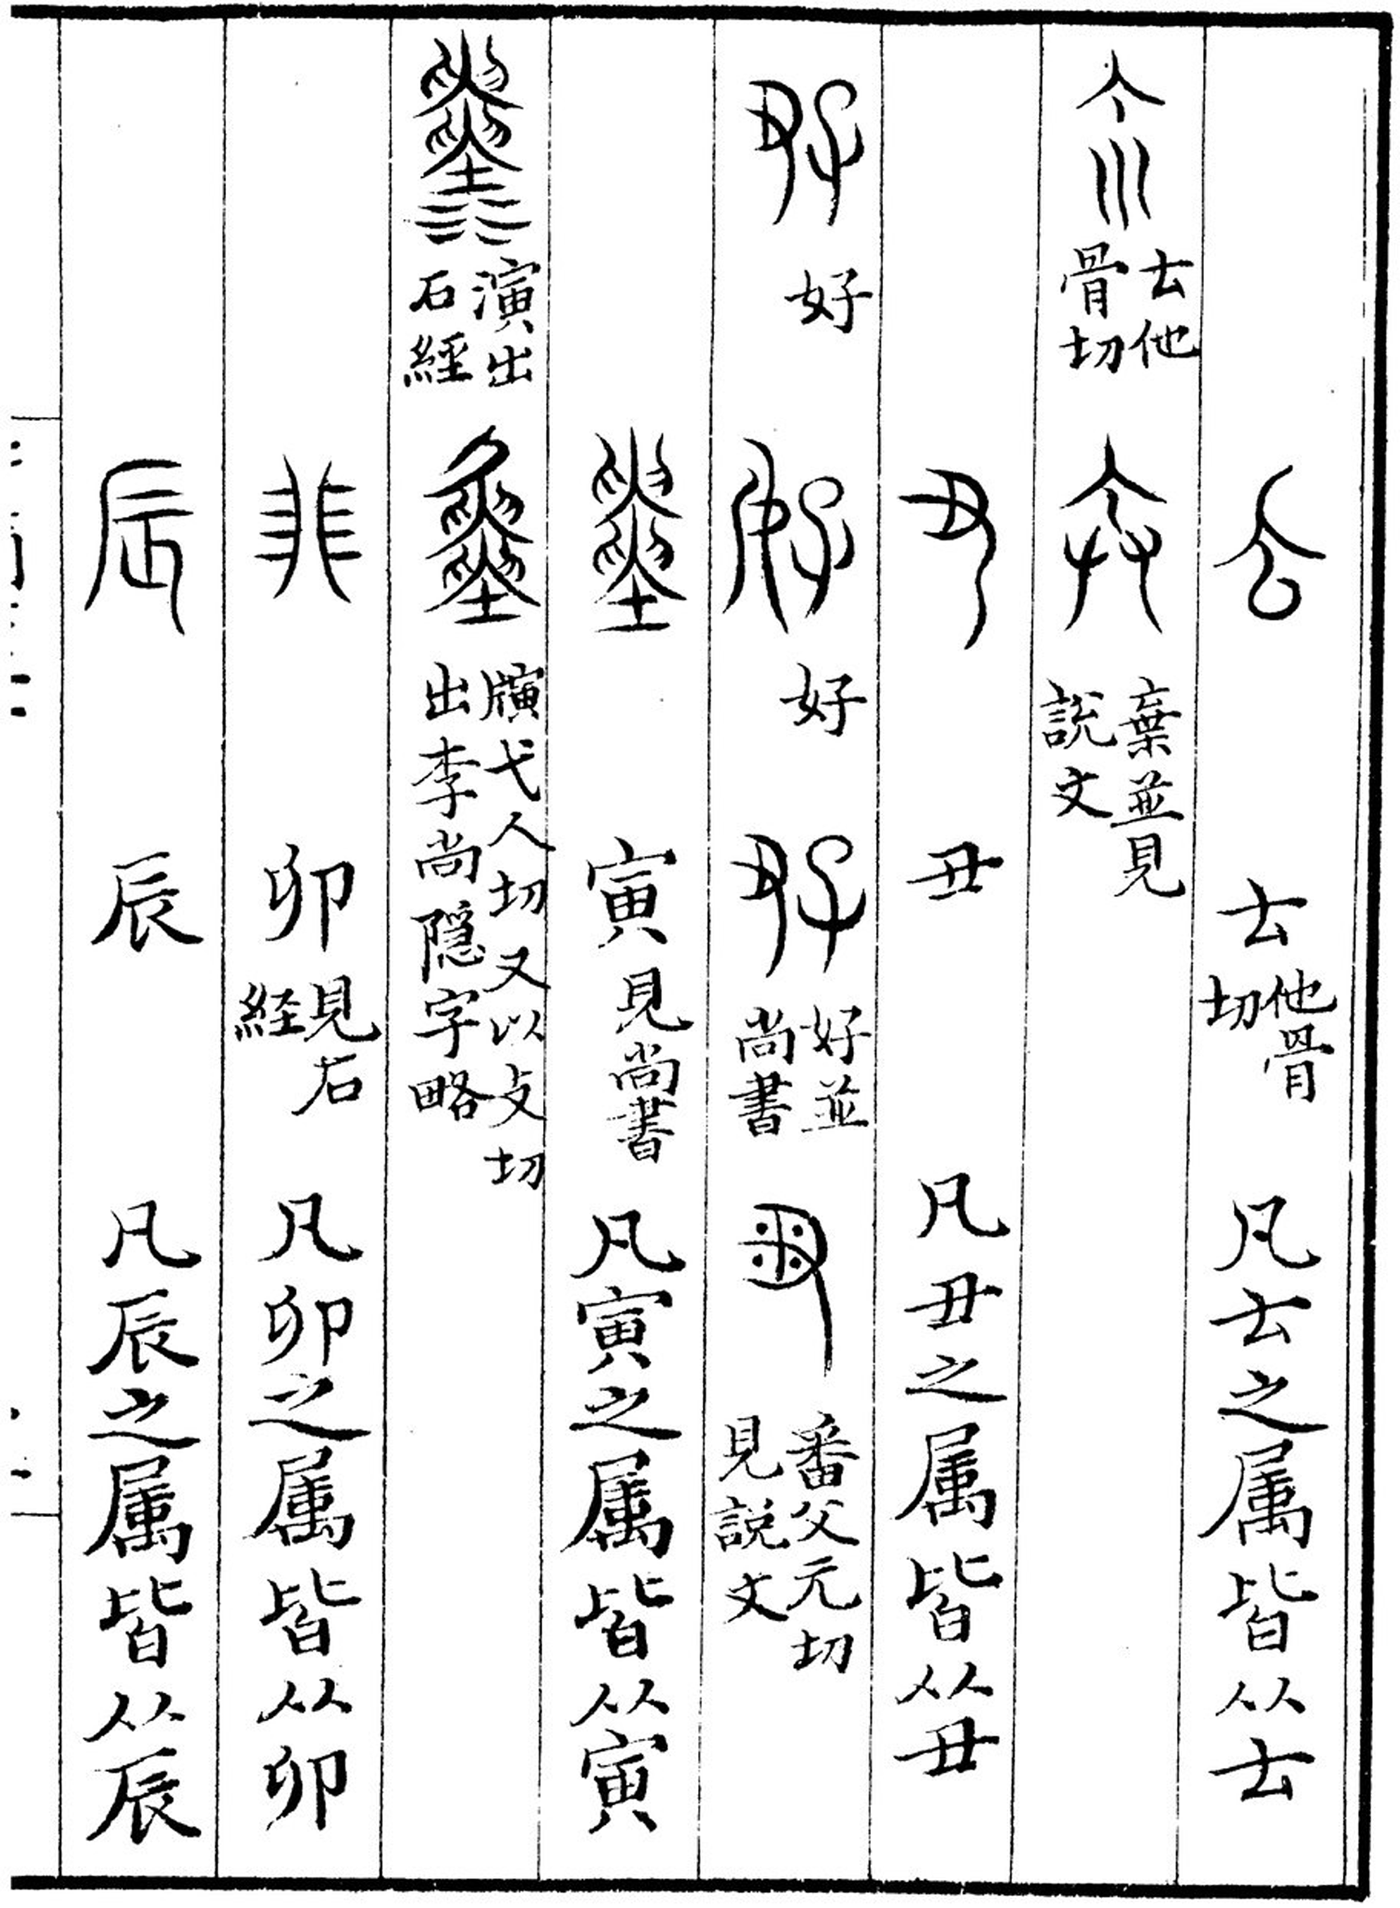 𠫓他骨切 凡𠫓之属皆从𠫓
𠫓他骨切 棄並見說文
丑 凡丑之属皆从丑
好 好 好並尚書 番父元切見說文
寅見尚書 凡寅之属皆从寅
演出石經 㡾弋人切又以攴切出李尚隠字略
卯見石経 凡卯之属皆从卯
辰 凡辰之属皆从辰